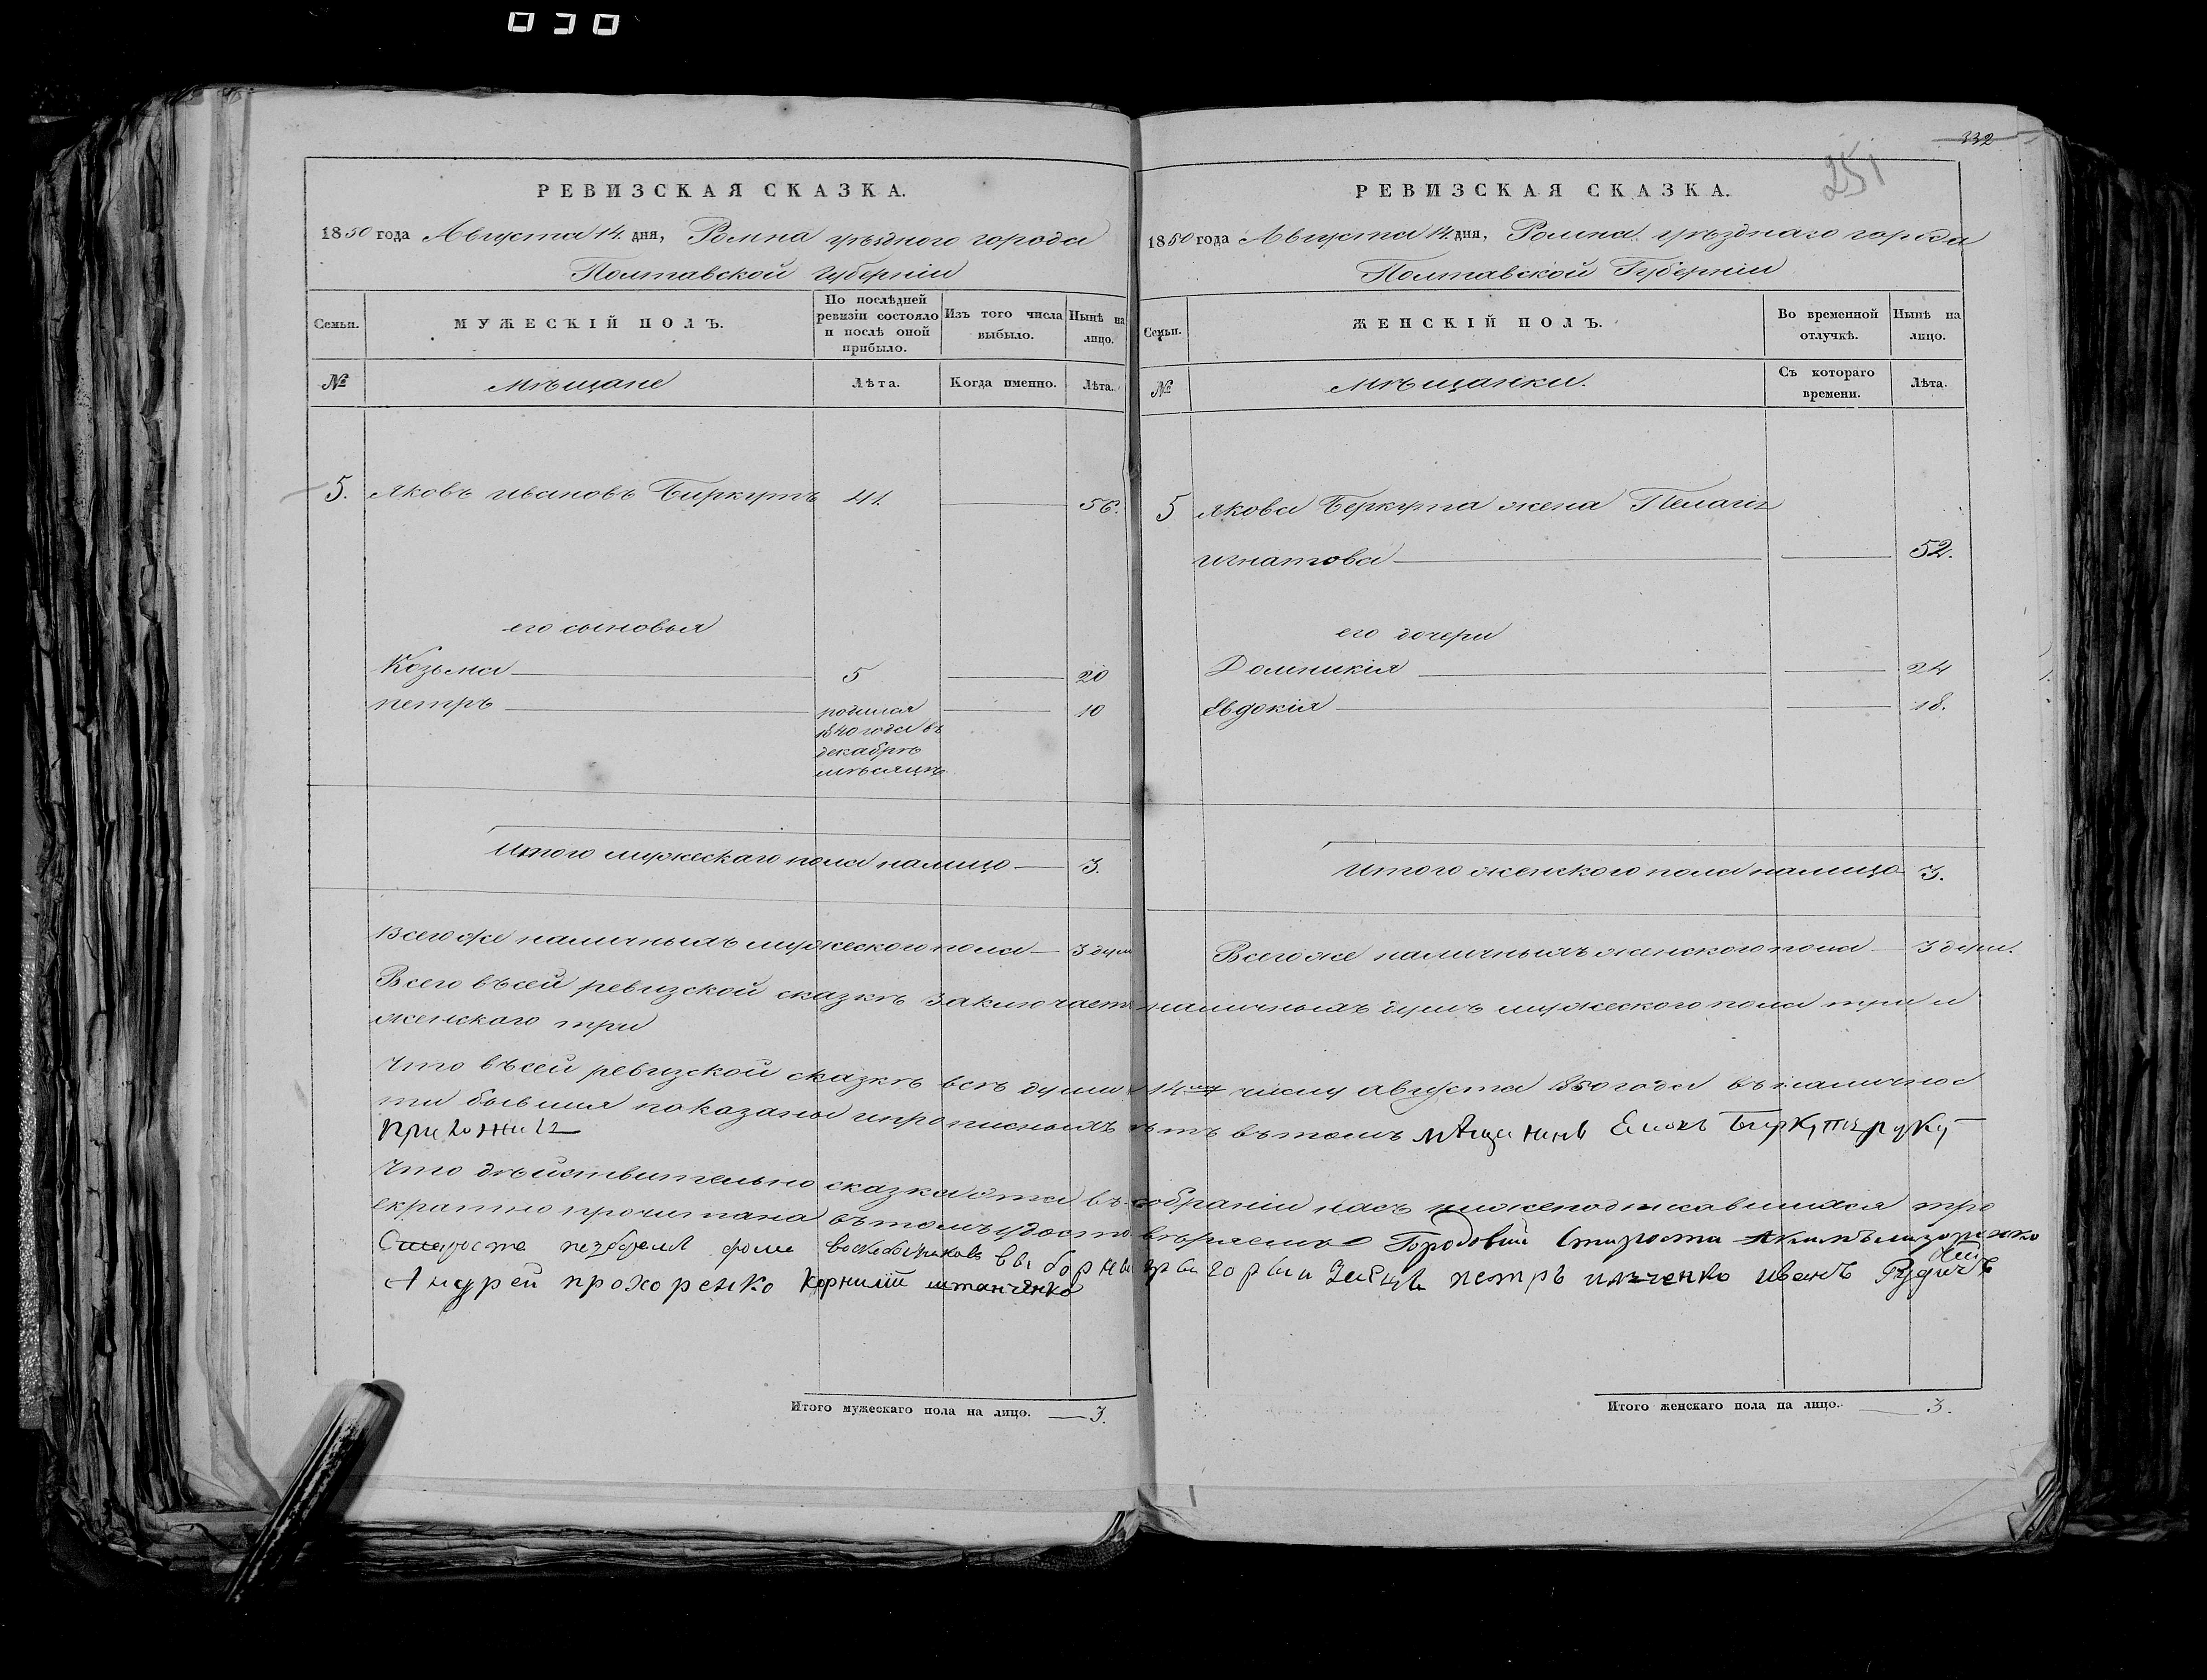 332
251
РЕВИЗСКАЯ СКАЗКА.
1850 года Августа 14. дня, Ромна уѣзднаго города
Полтавской Губерніи
Семьи.
МУЖЕСКІЙ ПОЛЪ.
По послѣдней ревизіи состояло и послѣ оной прибыло.
Изъ того числа выбыло.
Нынѣ на лицо.
№
Мѣщане
Лѣта.
Когда именно.
Лѣта.
5. Яковъ Ивановъ Биркутъ 41. 56.
его сыновья
Козьма 5 20
Петръ родился 10
1840 года въ
декабрѣ
мѣсяцѣ
Итого мужескаго пола налицо 3.
Всего же наличныхъ мужеского пола 3 душ
РЕВИЗСКАЯ СКАЗКА.
1850 года Августа 14. дня, Ромна уѣзднаго города
Полтавской Губерніи
Семьи.
ЖЕНСКІЙ ПОЛЪ.
Во временной отлучкѣ.
Нынѣ на лицо.
№
Мѣщанки.
Съ котораго времени.
Лѣта.
5 Якова Беркута жена Пелагія
Игнатова 52.
его дочери
Домникія 24
Евдокія 18.
Итого женского пола налицо 3.
Всего же наличныхъ женского пола 3 души.
Всего въ сей ревизской сказкѣ заключается наличныхъ душъ мужеского пола три и
женскаго три
Что въ сей ревизской сказкѣ всѣ души к 14му числу августа 1850 года въ наличнос
ти бывшия показаны и прописныхъ нѣтъ въ томъ мѣщанинъ Биркут руку
приложилъ
Что дѣйствительно сказка эта въ собраніи насъ нижеподписавшихся тро
екратно прочитана въ томъ удостовѣряемъ Городовий Староста Акимъ
Андрей прохоренко Корнилій штанченко петръ иванъ Рудичъ
Итого мужескаго пола на лицо. 3.
Итого женскаго пола на лицо. 3.